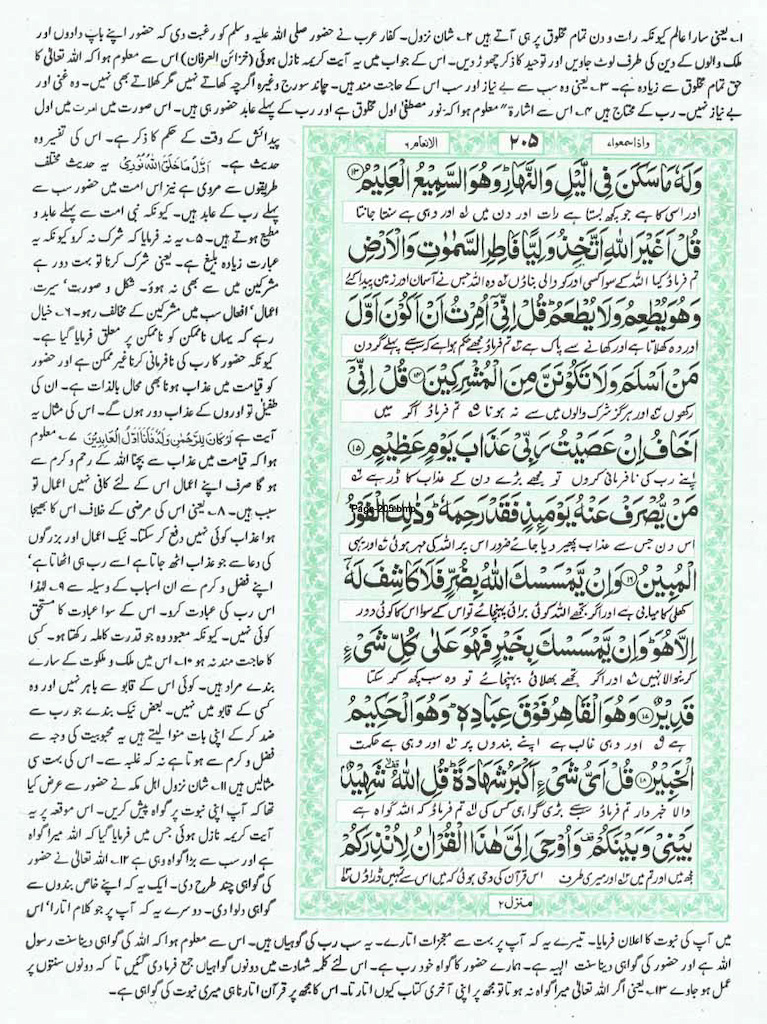 ۱۔ یعنی سارا عالم کیونکہ رات و دن تمام مخلوق پر ہی آتے ہیں ۲۔ شان نزول۔ کفار عرب نے حضور صلی اللہ علیہ وسلم کو رغبت دی کہ حضور اپنے باپ دادوں اور
ملک والوں کے دین کی طرف لوٹ جاویں اور توحید کا ذکر چھوڑ دیں۔ اس کے جواب میں یہ آیت کریمہ نازل ہوئی (خزائن العرفان) اس سے معلوم ہوا کہ اللہ تعالیٰ کا
حق تمام مخلوق سے زیادہ ہے۔ ۳۔ یعنی وہ سب سے بے نیاز اور سب اس کے حاجت مند ہیں۔ چاند سورج وغیرہ اگرچہ کھاتے نہیں مگر کھلاتے بھی نہیں۔ وہ غنی اور
بے نیاز نہیں۔ رب کے محتاج ہیں ۴۔ اس سے اشارۃً معلوم ہوا کہ نور مصطفیٰ اول مخلوق ہے اور رب کے پہلے عابد حضور ہی ہیں۔ اس صورت میں امرت میں اول
پیدائش کے وقت کے حکم کا ذکر ہے۔ اس کی تفسیر وہ
حدیث ہے۔ اَوَّلُ مَا خَلَقَ اللّٰهُ نُوْرِیْ یہ حدیث مختلف
طریقوں سے مروی ہے نیز اس امت میں حضور سب سے
پہلے رب کے عابد ہیں۔ کیونکہ نبی امت سے پہلے عابد و
مطیع ہوتے ہیں۔ ۵۔ یہ نہ فرمایا کہ شرک نہ کرو کیونکہ یہ
عبارت زیادہ بلیغ ہے۔ یعنی شرک کرنا تو بہت دور ہے
مشرکین میں سے بھی نہ ہوؤ۔ شکل و صورت، سیرت،
اعمال، افعال سب میں مشرکین کے مخالف رہو۔ ۶۔ خیال
رہے کہ یہاں ناممکن کو ناممکن پر معلق فرمایا گیا ہے۔
کیونکہ حضور کا رب کی نافرمانی کرنا غیر ممکن ہے اور حضور
کو قیامت میں عذاب ہونا بھی محال بالذات ہے۔ ان کی
طفیل تو اوروں کے عذاب دور ہوں گے۔ اس کی مثال یہ
آیت ہے لَوْ كَانَ لِلرَّحْمٰنِ وَلَدٌ فَاَنَا اَوَّلُ الْعَابِدِیْنَ ۷۔ معلوم
ہوا کہ قیامت میں عذاب سے بچنا اللہ کے رحم و کرم سے
ہو گا صرف اپنے اعمال اس کے لئے کافی نہیں اعمال تو
سبب ہیں۔ ۸۔ یعنی اس کی مرضی کے خلاف اس کا بھیجا
ہوا عذاب کوئی نہیں دفع کر سکتا۔ نیک اعمال اور بزرگوں
کی دعا سے جو عذاب اٹھ جاتا ہے اسے رب ہی اٹھاتا ہے،
اپنے فضل و کرم سے ان اسباب کے وسیلہ سے ۹۔ لہٰذا
اس رب کی عبادت کرو۔ اس کے سوا عبادت کا مستحق
کوئی نہیں۔ کیونکہ معبود وہ جو قدرت کاملہ رکھتا ہو۔ کسی
کا حاجت مند نہ ہو ۱۰۔ اس میں ملک و ملکوت کے سارے
بندے مراد ہیں۔ کوئی اس کے قابو سے باہر نہیں اور وہ
کسی کے قابو میں نہیں۔ بعض نیک بندے جو رب سے
ضد کر کے اپنی بات منوا لیتے ہیں یہ محبوبیت کی وجہ سے
فضل و کرم سے ہوتا ہے نہ کہ غلبہ سے۔ اس کی بہت سی
مثالیں ہیں ۱۱۔ شان نزول اہل مکہ نے حضور سے عرض کیا
تھا کہ آپ اپنی نبوت پر گواہ پیش کریں۔ اس موقعہ پر یہ
آیت کریمہ نازل ہوئی جس میں فرمایا گیا کہ اللہ میرا گواہ
ہے اور سب سے بڑا گواہ وہی ہے ۱۲۔ اللہ تعالیٰ نے حضور
کی گواہی چند طرح دی۔ ایک یہ کہ اپنے خاص بندوں سے
گواہی دلوا دی۔ دوسرے یہ کہ آپ پر جو کلام اتارا، اس
واذا سمعوا۷ ۲۰۵ الانعام۶
وَلَهٗ مَا سَكَنَ فِی الَّیْلِ وَالنَّهَارِ وَهُوَ السَّمِیْعُ الْعَلِیْمُ ۱۳
اور اسی کا ہے جو کچھ بستا ہے رات اور دن میں اور وہی ہے سنتا جانتا
قُلْ اَغَیْرَ اللّٰهِ اَتَّخِذُ وَلِیًّا فَاطِرِ السَّمٰوٰتِ وَالْاَرْضِ
تم فرماؤ کیا اللہ کے سوا کسی اور کو والی بناؤں وہ اللہ جس نے آسمان اور زمین پیدا کئے
وَهُوَ یُطْعِمُ وَلَا یُطْعَمُ قُلْ اِنِّیْۤ اُمِرْتُ اَنْ اَكُوْنَ اَوَّلَ
اور وہ کھلاتا ہے اور کھانے سے پاک ہے تم فرماؤ مجھے حکم ہوا ہے کہ سب سے پہلے گردن
مَنْ اَسْلَمَ وَلَا تَكُوْنَنَّ مِنَ الْمُشْرِكِیْنَ ۱۴ قُلْ اِنِّیْۤ
رکھوں اور ہرگز شرک والوں میں سے نہ ہونا تم فرماؤ اگر میں
اَخَافُ اِنْ عَصَیْتُ رَبِّیْ عَذَابَ یَوْمٍ عَظِیْمٍ ۱۵
اپنے رب کی نافرمانی کروں تو مجھے بڑے دن کے عذاب کا ڈر ہے
مَنْ یُّصْرَفْ عَنْهُ یَوْمَىِٕذٍ فَقَدْ رَحِمَهٗ وَذٰلِكَ الْفَوْزُ
Page-205.bmp
اس دن جس سے عذاب پھیر دیا جائے ضرور اس پر اللہ کی مہر ہوئی اور یہی
الْمُبِیْنُ ۱۶ وَاِنْ یَّمْسَسْكَ اللّٰهُ بِضُرٍّ فَلَا كَاشِفَ لَهٗۤ
کھلی کامیابی ہے اور اگر تجھے اللہ کوئی برائی پہنچائے تو اس کے سوا اس کا کوئی دور
اِلَّا هُوَ وَاِنْ یَّمْسَسْكَ بِخَیْرٍ فَهُوَ عَلٰى كُلِّ شَیْءٍ
کرنیوالا نہیں اور اگر تجھے بھلائی پہنچائے تو وہ سب کچھ کر سکتا
قَدِیْرٌ ۱۷ وَهُوَ الْقَاهِرُ فَوْقَ عِبَادِهٖ وَهُوَ الْحَكِیْمُ
ہے اور وہی غالب ہے اپنے بندوں پر اور وہی ہے حکمت
الْخَبِیْرُ ۱۸ قُلْ اَیُّ شَیْءٍ اَكْبَرُ شَهَادَةً قُلِ اللّٰهُ شَهِیْدٌ
والا خبردار تم فرماؤ سب سے بڑی گواہی کس کی تم فرماؤ کہ اللہ گواہ ہے
بَیْنِیْ وَبَیْنَكُمْ وَاُوْحِیَ اِلَیَّ هٰذَا الْقُرْاٰنُ لِاُنْذِرَكُمْ
مجھ میں اور تم میں اور میری طرف اس قرآن کی وحی ہوئی کہ میں اس سے تمہیں ڈراؤں
منزل ۲
میں آپ کی نبوت کا اعلان فرمایا۔ تیسرے یہ کہ آپ پر بہت سے معجزات اتارے۔ یہ سب رب کی گواہیاں ہیں۔ اس سے معلوم ہوا کہ اللہ کی گواہی دینا سنت رسول
اللہ ہے اور حضور کی گواہی دینا سنت الٰہیہ ہے۔ ہمارے حضور کا گواہ خود رب ہے۔ اس لئے کلمہ شہادت میں دونوں گواہیاں جمع فرما دی گئیں تا کہ دونوں سنتوں پر
عمل ہو جاوے ۱۳۔ یعنی اگر اللہ تعالیٰ میرا گواہ نہ ہوتا تو مجھ پر اپنی آخری کتاب کیوں اتارتا۔ اس کا مجھ پر قرآن اتارنا ہی میری نبوت کی گواہی ہے۔